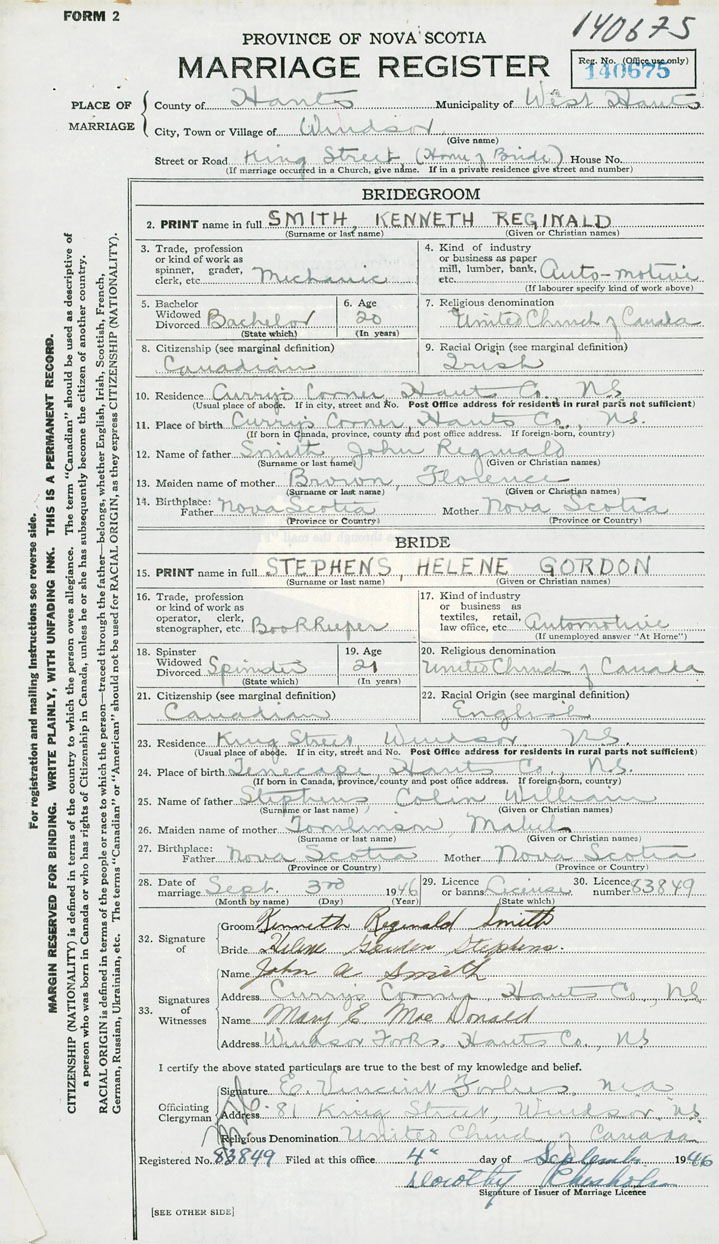 FORM 2
140675
PROVINCE OF NOVA SCOTIA
MARRIAGE REGISTER
Reg. No. (Office use only)
140675
PLACE OF MARRIAGE
County of Hants Municipality of West Hants
City, Town or Village of Windsor
(Give name)
Street or Road King Street, (Home of Bride) House No.
(If marriage occurred in a Church, give name. If in a private residence give street and number)
BRIDEGROOM
2. PRINT name in full SMITH, KENNETH REGINALD
(Surname or last name) (Given or Christian names)
3. Trade, profession or kind of work as spinner, grader, clerk, etc. Mechanic
4. Kind of industry or business as paper mill, lumber, bank, etc. Auto-motive
(If labourer specify kind of work above)
5. Bachelor Widowed Divorced Bachelor
(State which)
6. Age 20
(In years)
7. Religious denomination
United Church of Canada
8. Citizenship (see marginal definition)
Canadian
9. Racial Origin (see marginal definition)
Irish
10. Residence Curry's Corner, Hants Co., N.S.
(Usual place of abode. If in city, street and No. Post Office address for residents in rural parts not sufficient)
11. Place of birth Curry's Corner, Hants Co., N.S.
(If born in Canada, province, county and post office address. If foreign-born, country)
12. Name of father Smith, John Reginald
(Surname or last name) (Given or Christian names)
13. Maiden name of mother Brown, Florence
(Surname or last name) (Given or Christian names)
14. Birthplace: Father Nova Scotia Mother Nova Scotia
(Province or Country) (Province or Country)
BRIDE
15. PRINT name in full STEPHENS, HELENE GORDON
(Surname or last name) (Given or Christian names)
16. Trade, profession or kind of work as operator, clerk, stenographer, etc. BookKeeper
17. Kind of industry or business as textiles, retail, law office, etc. Automotive
(If unemployed answer "At Home")
18. Spinster Widowed Divorced Spinster
(State which)
19. Age 21
(In years)
20. Religious denomination
United Church of Canada
21. Citizenship (see marginal definition)
Canadian
22. Racial Origin (see marginal definition)
English
23. Residence King Street, Windsor N.S.
(Usual place of abode. If in city, street and No. Post Office address for residents in rural parts not sufficient)
24. Place of birth Tenecape Hants Co., N.S.
(If born in Canada, province, county and post office address. If foreign-born, country)
25. Name of father Stephens, Colin William
(Surname or last name) (Given or Christian names)
26. Maiden name of mother Tomlinson, Mabel
(Surname or last name) (Given or Christian names)
27. Birthplace: Father Nova Scotia Mother Nova Scotia
(Province or Country) (Province or Country)
28. Date of marriage Sept. 3rd 1946
(Month by name) (Day) (Year)
29. Licence or banns License
(State which)
30. Licence number 83849
32. Signature of
Groom Kenneth Reginald Smith
Bride Helene Gordon Stephens.
33. Signatures of Witnesses
Name John A Smith
Address Curry's Corner, Hants Co., NS
Name Mary E MacDonald
Address Windsor Forks, Hants Co., NS
I certify the above stated particulars are true to the best of my knowledge and belief.
Officiating Clergyman
Signature E. Vincent Forbes, M.A
Address 81 King Street, Windsor, N.S.
Religious Denomination United Church of Canada
Registered No. 83849 Filed at this office 4th day of September 1946
Dorothy Chisholm
Signature of Issuer of Marriage Licence
[SEE OTHER SIDE]
For registration and mailing instructions see reverse side.
MARGIN RESERVED FOR BINDING. WRITE PLAINLY, WITH UNFADING INK. THIS IS A PERMANENT RECORD.
CITIZENSHIP (NATIONALITY) is defined in terms of the country to which the person owes allegiance. The term "Canadian" should be used as descriptive of
a person who was born in Canada or who has rights of Citizenship in Canada, unless he or she has subsequently become the citizen of another country.
RACIAL ORIGIN is defined in terms of the people or race to which the person—traced through the father—belongs, whether English, Irish, Scottish, French,
German, Russian, Ukrainian, etc. The terms "Canadian" or "American" should not be used for RACIAL ORIGIN, as they express CITIZENSHIP (NATIONALITY).